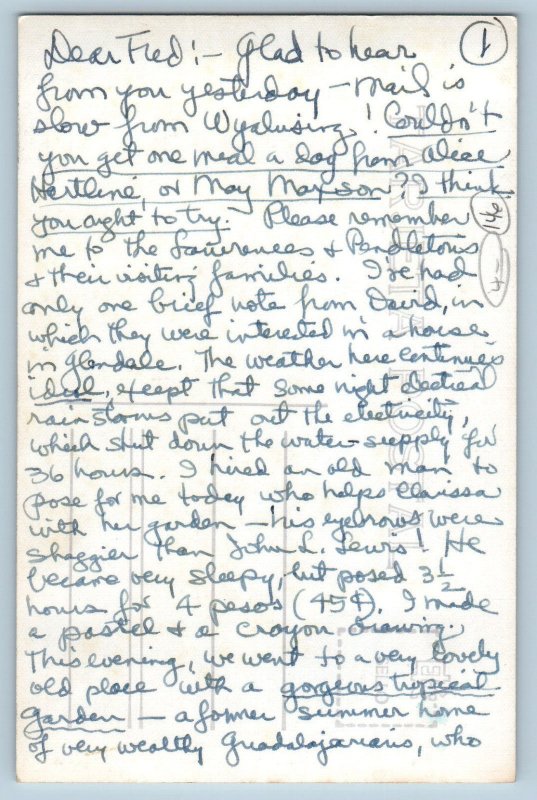 Dear Fred :- Glad to hear
1
from you yesterday - mail is
slow from Wyalusing! Couldn't
you get one meal a day from Alice
Hertline, or May Mayson?? I think
you ought to try. Please remember
146
me to the Lawrences & Pendletons
& their visiting families. I've had
only one brief note from David, in
which they were interested in a house
in Glendale. The weather here continues
ideal, except that some night electrical
rain storms put out the electricity,
which shut down the water-supply for
36 hours. I hired an old man to
pose for me today who helps Clarissa
with her garden - his eyebrows were
shaggier than John L. Lewis! He
became very sleepy, but posed 3½
hours for 4 pesos (45¢). I made
a pastel & a crayon drawing.
This evening, we went to a very lovely
old place with a gorgeous tropical
garden - a former summer home
of very wealthy Guadalajarians, who
TARJETA POSTAL